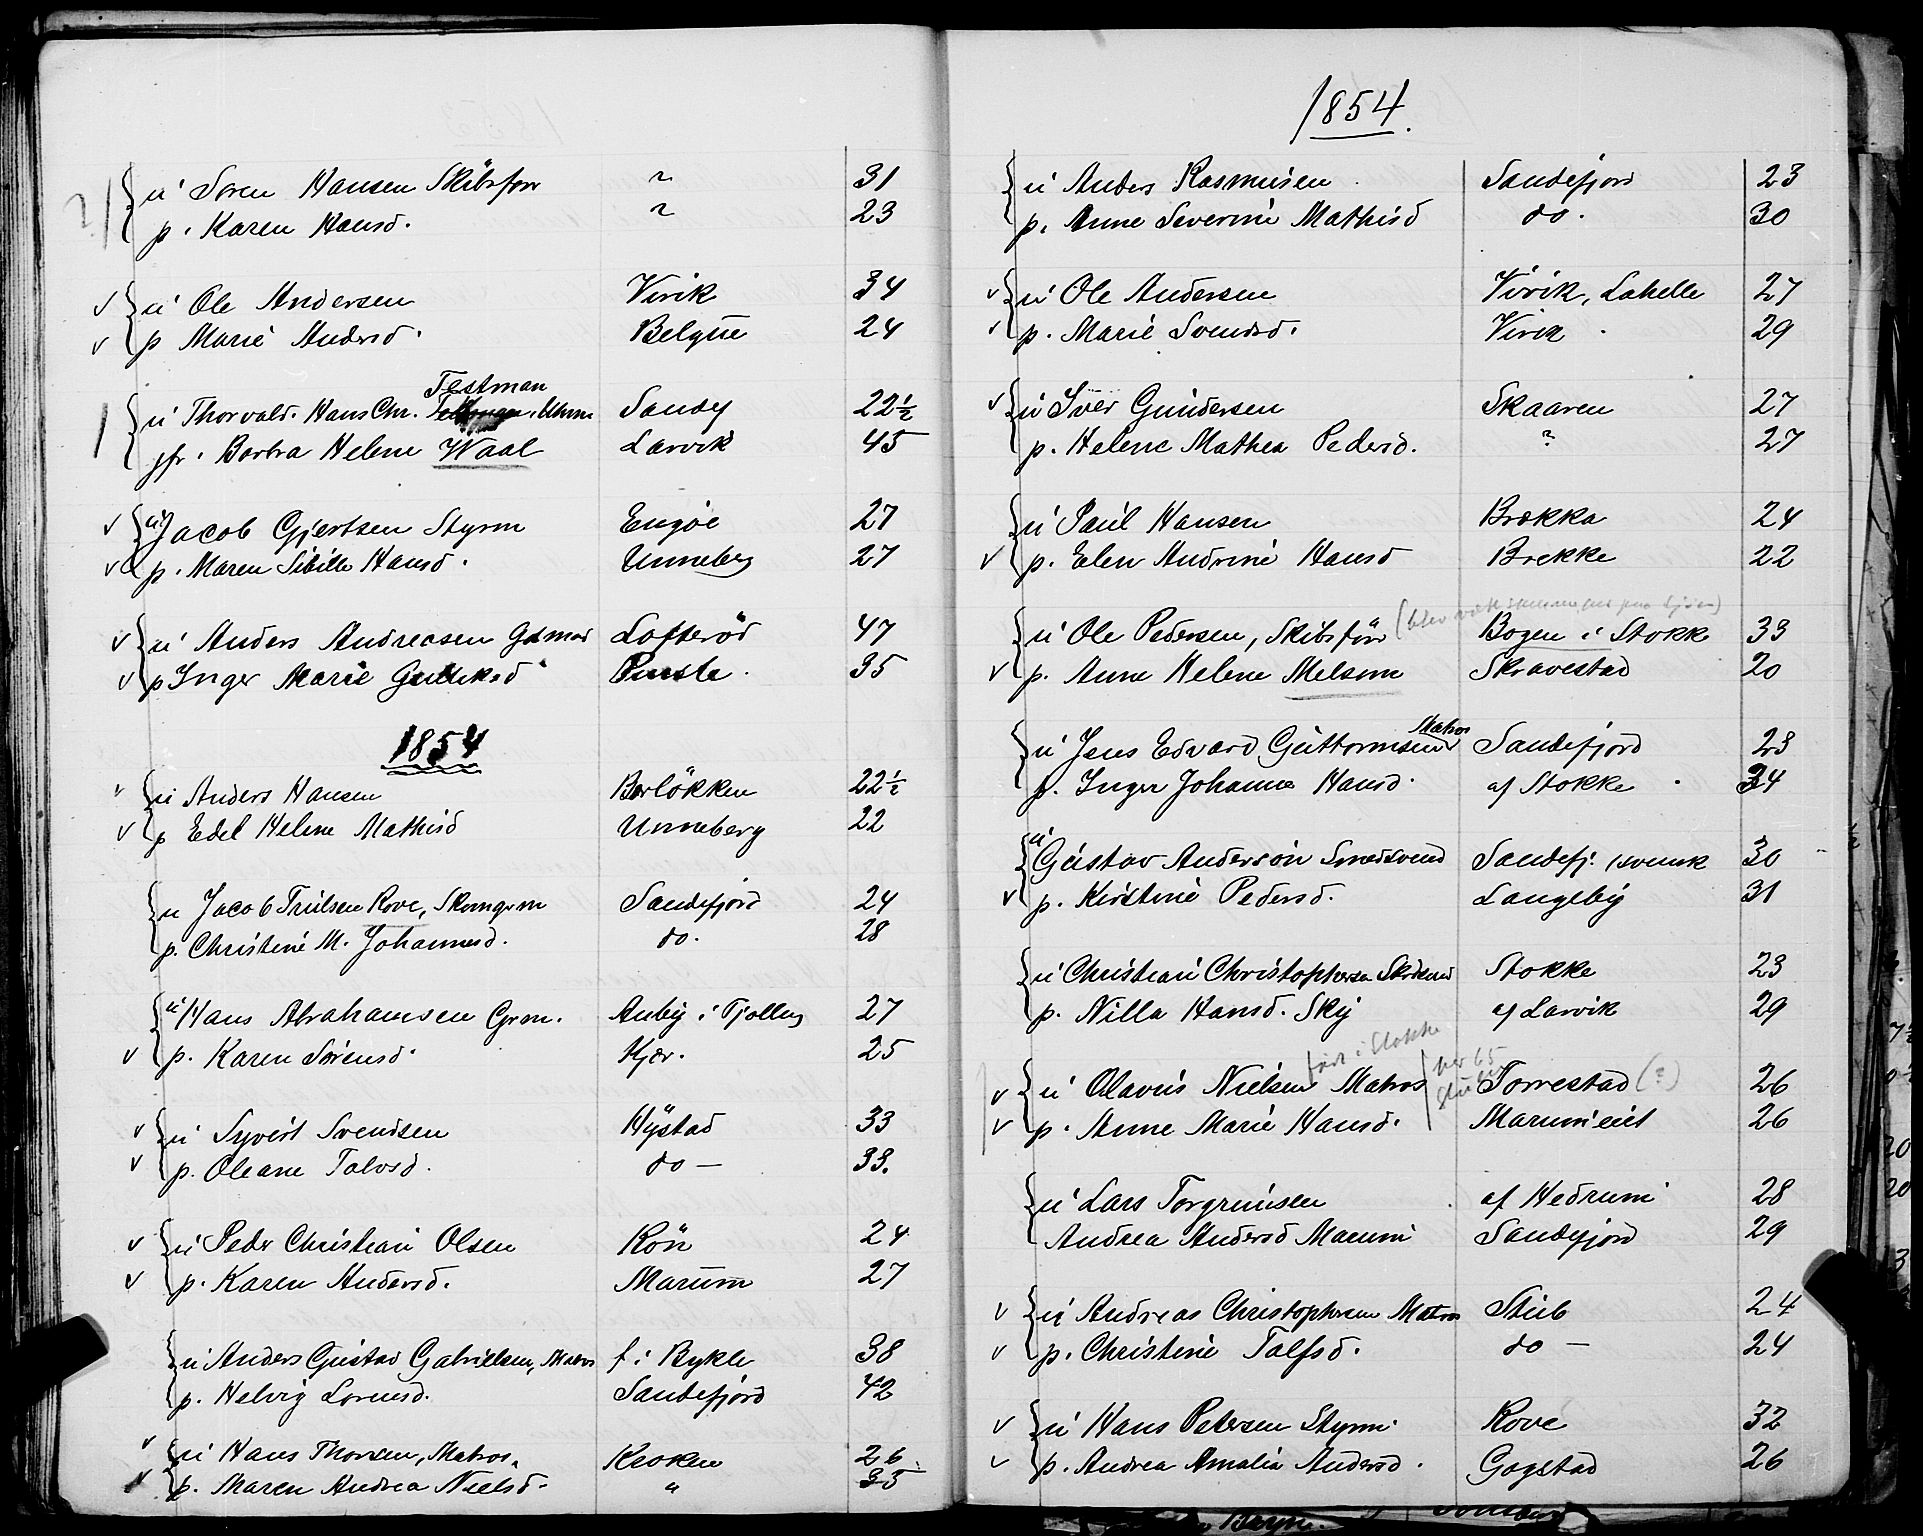 u Soren Hansen Skibsför ? 31
p. Karen Hansd. ? 23
u Ole Andersen Virik 34
p Marie Andersd. Belgue 24
Testman
u Thorvald. Hans Chr. Sandf 22½
jfr. Barbra Helene Waal Larvik 45
u Jacob Gjertsen Styrm Engöe 27
p. Maren Sibille Hansd. Unneberg 27
u Anders Andreasen Gdmd Lofteröd 47
p Inger Marie Gulliksd Puste. 35
1854
u Anders Hansen Borlökken 22½
p Edel Helene Mathisd Unneberg 22
u Jacob Trulsen Rove, Skomgrm Sandefjord 24
p. Christine M. Johannesd. do. 28
u Hans Abrahamsen Grm. Auby i Tjølling 27
p. Karen Sörensd. Kjær. 25
u Syvert Svendsen Hystad 33
p. Oleane Talvsd. do — 33.
u Peder Christian Olsen Rön 24
p. Karen Andersd. Marum 27
u Anders Gustav Gabrielsen, Matros f. i Bykle 38
p. Helvig Lorensd. Sandefjord 42
u Hans Thorsen, Matros. Kroken 26
p. Maren Andrea Nielsd. " 35
1854.
u Anders Rasmusen Sandefjord 23
p. Anne Severine Mathisd do. 30
u Ole Andersen Virik, Lahelle 27
p. Marie Svendsd. Virik 29
u Iver Gundersen Skaaren 27
p. Helene Mathea Pedersd. ? 27
u Paul Hansen Brekka 24
p. Elen Andrine Hansd Brekke 22
u Ole Pedersen, Skibsför (blev Bogen i Stokke 33
p. Anne Helene Melsom Skravestad 20
Matros
u Jens Edvard Guttormsen Sandefjord 23
p. Inger Johanne Hansd. af Stokke 34
u Gustav Anderson Smedsvend Sandefj. svensk 30
p. Kirstine Pedersd. Langeby 31
u Christian Christophersen Stokke 23
p. Nilla Hansd. Sky af Larvik 29
født i Stokke
u Olavus Nielsen Matros Torrestad (?) 26
p. Anne Marie Hansd. Marumeiet 26
u Lars Torgrimsen af Hedrum 28
Andrea Andersd Marum Sandefjord 29
u Andreas Christophersen Matros Stub 24
p. Christine Talfsd. do — 24
u Hans Petersen Styrm. Rove 32
p. Andrea Amalia Andersd. Gogstad 26